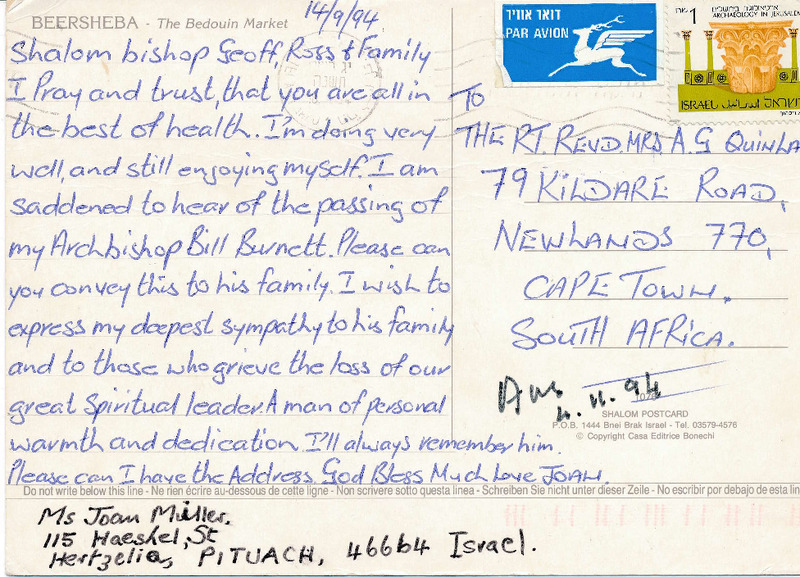 BEERSHEBA - The Bedouin Market
14/9/94
Shalom bishop Geoff, Ross & Family
I Pray and trust, that you are all in
the best of health. I'm doing very
well, and still enjoying myself. I am
saddened to hear of the passing of
my Archbishop Bill Burnett. Please can
you convey this to his family. I wish to
express my deepest sympathy to his family
and to those who grieve the loss of our
great Spiritual leader. A man of personal
warmth and dedication. I'll always remember him.
Please can I have the Address. God Bless Much Love JOAN.
דואר אוויר
PAR AVION
1
ARCHAEOLOGY IN JERUSALEM
ISRAEL اسرائيل ישראל
To
THE RT. REVD. MRS A.G QUINLA
79 KILDARE ROAD,
NEWLANDS 770,
CAPE TOWN.
SOUTH AFRICA.
4.11.94
SHALOM POSTCARD
P.O.B. 1444 Bnei Brak Israel - Tel. 03579-4576
© Copyright Casa Editrice Bonechi
Do not write below this line - Ne rien écrire au-dessous de cette ligne - Non scrivere sotto questa linea - Schreiben Sie nicht unter dieser Zeile - No escribir por debajo de esta lin
Ms Joan Müller.
115 Haeshel, St
Hertzelia, PITUACH, 46664 Israel.